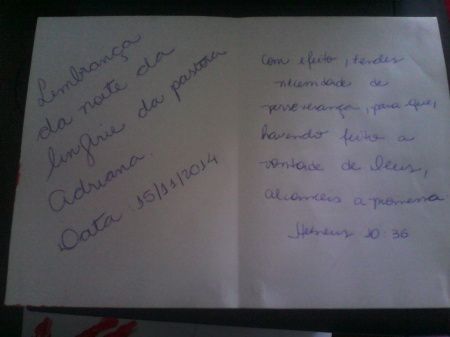 Lembrança
da noite da
lingirie da pastora
Adriana.
Data: 15/11/2014
Com efeito, tendes
necessidade de
perseverança, para que,
havendo feito a
vontade de Deus,
alcanceis a promessa
Hebreus 10:36